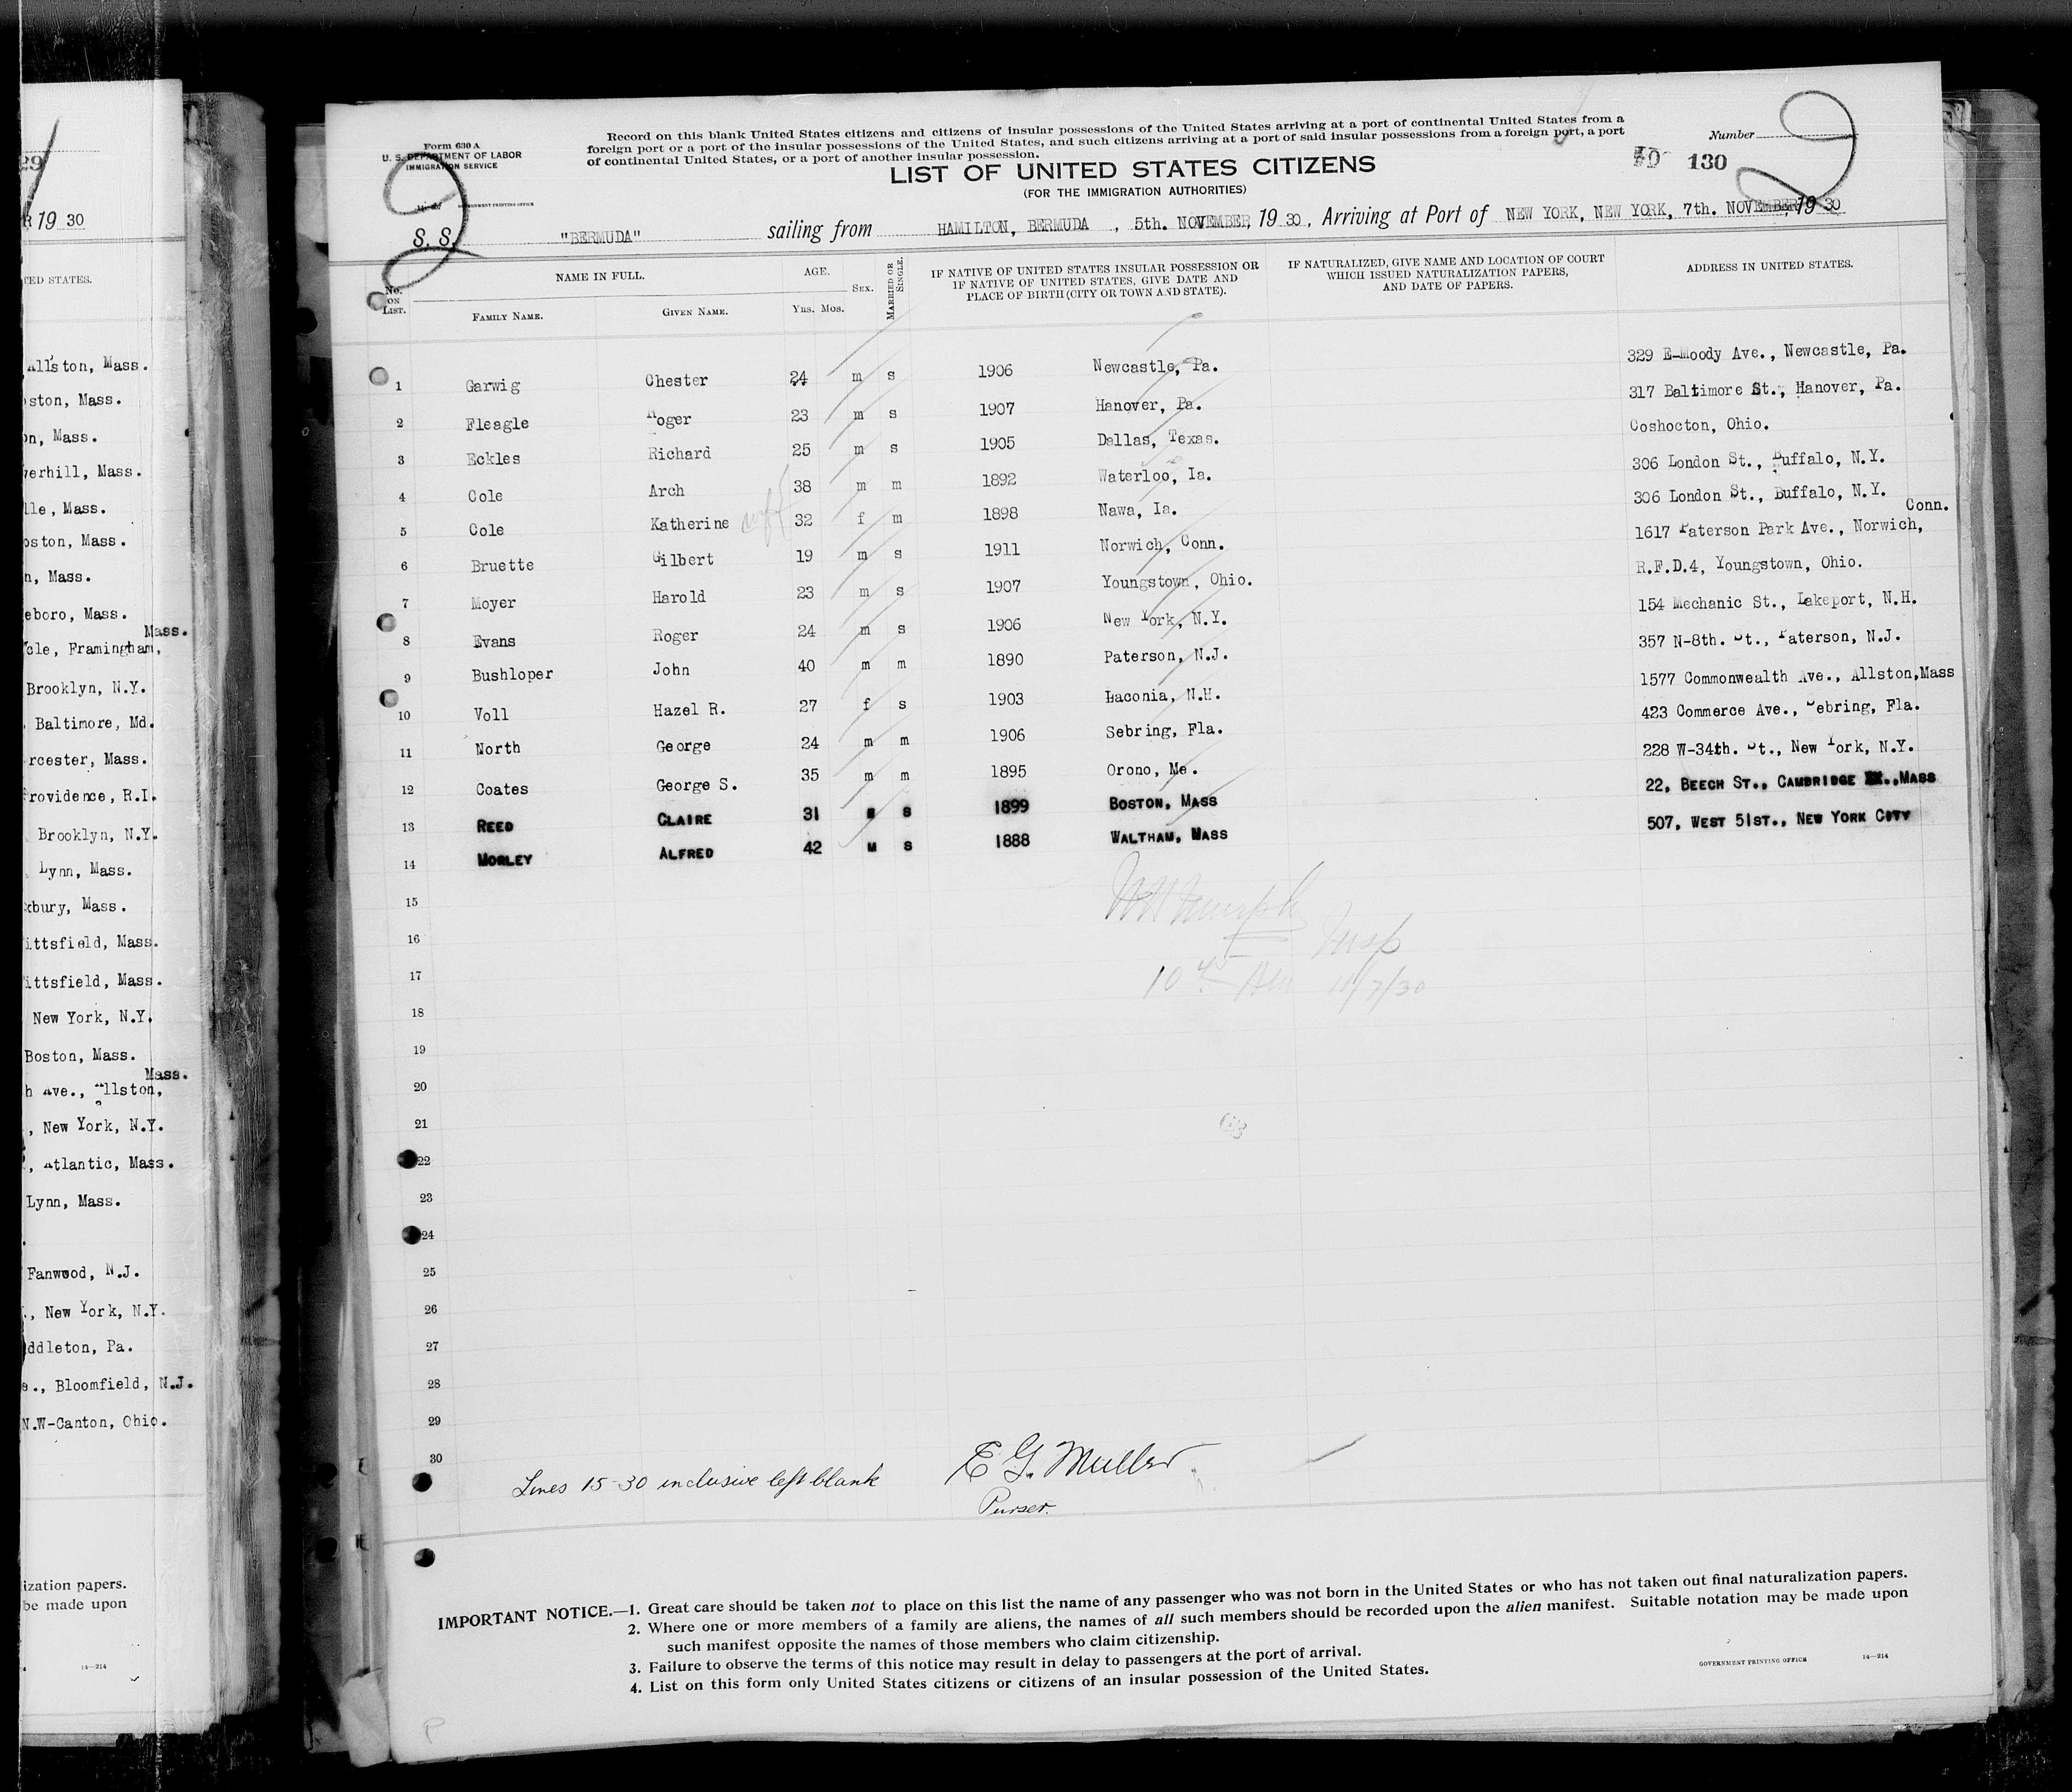 29
R 19 30
TED STATES.
Allston, Mass.
ston, Mass.
on, Mass.
verhill, Mass.
lle, Mass.
oston, Mass.
n, Mass.
eboro, Mass.
Mass.
cle, Framingham,
Brooklyn, N.Y.
Baltimore, Md.
rcester, Mass.
Providence, R.I.
Brooklyn, N.Y.
Lynn, Mass.
xbury, Mass.
ittsfield, Mass.
ittsfield, Mass.
New York, N.Y.
Boston, Mass.
Mass.
h Ave., Allston,
, New York, N.Y.
, Atlantic, Mass.
Lynn, Mass.
Fanwood, N.J.
., New York, N.Y.
ddleton, Pa.
e., Bloomfield, N.J.
N.W-Canton, Ohio.
ization papers.
be made upon
14—214
Form 630 A
U. S. DEPARTMENT OF LABOR
IMMIGRATION SERVICE
GOVERNMENT PRINTING OFFICE
2
Record on this blank United States citizens and citizens of insular possessions of the United States arriving at a port of continental United States from a
foreign port or a port of the insular possessions of the United States, and such citizens arriving at a port of said insular possessions from a foreign port, a port
of continental United States, or a port of another insular possession.
Number
2
130
LIST OF UNITED STATES CITIZENS
(FOR THE IMMIGRATION AUTHORITIES)
S. S. "BERMUDA" sailing from HAMILTON, BERMUDA , 5th. NOVEMBER, 19 30, Arriving at Port of NEW YORK, NEW YORK, 7th. NOVEMBER, 19 30
No. ON LIST. NAME IN FULL. AGE. SEX. MARRIED OR SINGLE. IF NATIVE OF UNITED STATES INSULAR POSSESSION OR IF NATIVE OF UNITED STATES, GIVE DATE AND PLACE OF BIRTH (CITY OR TOWN AND STATE). IF NATURALIZED, GIVE NAME AND LOCATION OF COURT WHICH ISSUED NATURALIZATION PAPERS, AND DATE OF PAPERS. ADDRESS IN UNITED STATES.
FAMILY NAME. GIVEN NAME. YRS. MOS.
1 Garwig Chester 24 m s 1906 Newcastle, Pa. 329 E-Moody Ave., Newcastle, Pa.
2 Fleagle Roger 23 m s 1907 Hanover, Pa. 317 Baltimore St., Hanover, Pa.
3 Eckles Richard 25 m s 1905 Dallas, Texas. Coshocton, Ohio.
4 Cole Arch 38 m m 1892 Waterloo, Ia. 306 London St., Buffalo, N.Y.
5 Cole Katherine wf 32 f m 1898 Nawa, Ia. 306 London St., Buffalo, N.Y.
Conn.
6 Bruette Gilbert 19 m s 1911 Norwich, Conn. 1617 Paterson Park Ave., Norwich,
7 Moyer Harold 23 m s 1907 Youngstown, Ohio. R.F.D.4, Youngstown, Ohio.
8 Evans Roger 24 m s 1906 New York, N.Y. 154 Mechanic St., Lakeport, N.H.
9 Bushloper John 40 m m 1890 Paterson, N.J. 357 N-8th. St., Paterson, N.J.
10 Voll Hazel R. 27 f s 1903 Laconia, N.H. 1577 Commonwealth Ave., Allston,Mass
11 North George 24 m m 1906 Sebring, Fla. 423 Commerce Ave., Sebring, Fla.
12 Coates George S. 35 m m 1895 Orono, Me. 228 W-34th. St., New York, N.Y.
13 REED CLAIRE 31 s 1899 BOSTON, MASS 22, BEECH ST., CAMBRIDGE XX.,MASS
14 MORLEY ALFRED 42 M S 1888 WALTHAM, MASS 507, WEST 51ST., NEW YORK CITY
15
16
Insp
17
11/7/30
18
19
20
21
22
23
24
25
26
27
28
29
30
Lines 15-30 inclusive left blank
E G. Muller
Purser.
IMPORTANT NOTICE.—1. Great care should be taken not to place on this list the name of any passenger who was not born in the United States or who has not taken out final naturalization papers.
2. Where one or more members of a family are aliens, the names of all such members should be recorded upon the alien manifest. Suitable notation may be made upon
such manifest opposite the names of those members who claim citizenship.
3. Failure to observe the terms of this notice may result in delay to passengers at the port of arrival.
4. List on this form only United States citizens or citizens of an insular possession of the United States.
GOVERNMENT PRINTING OFFICE 14—214
P